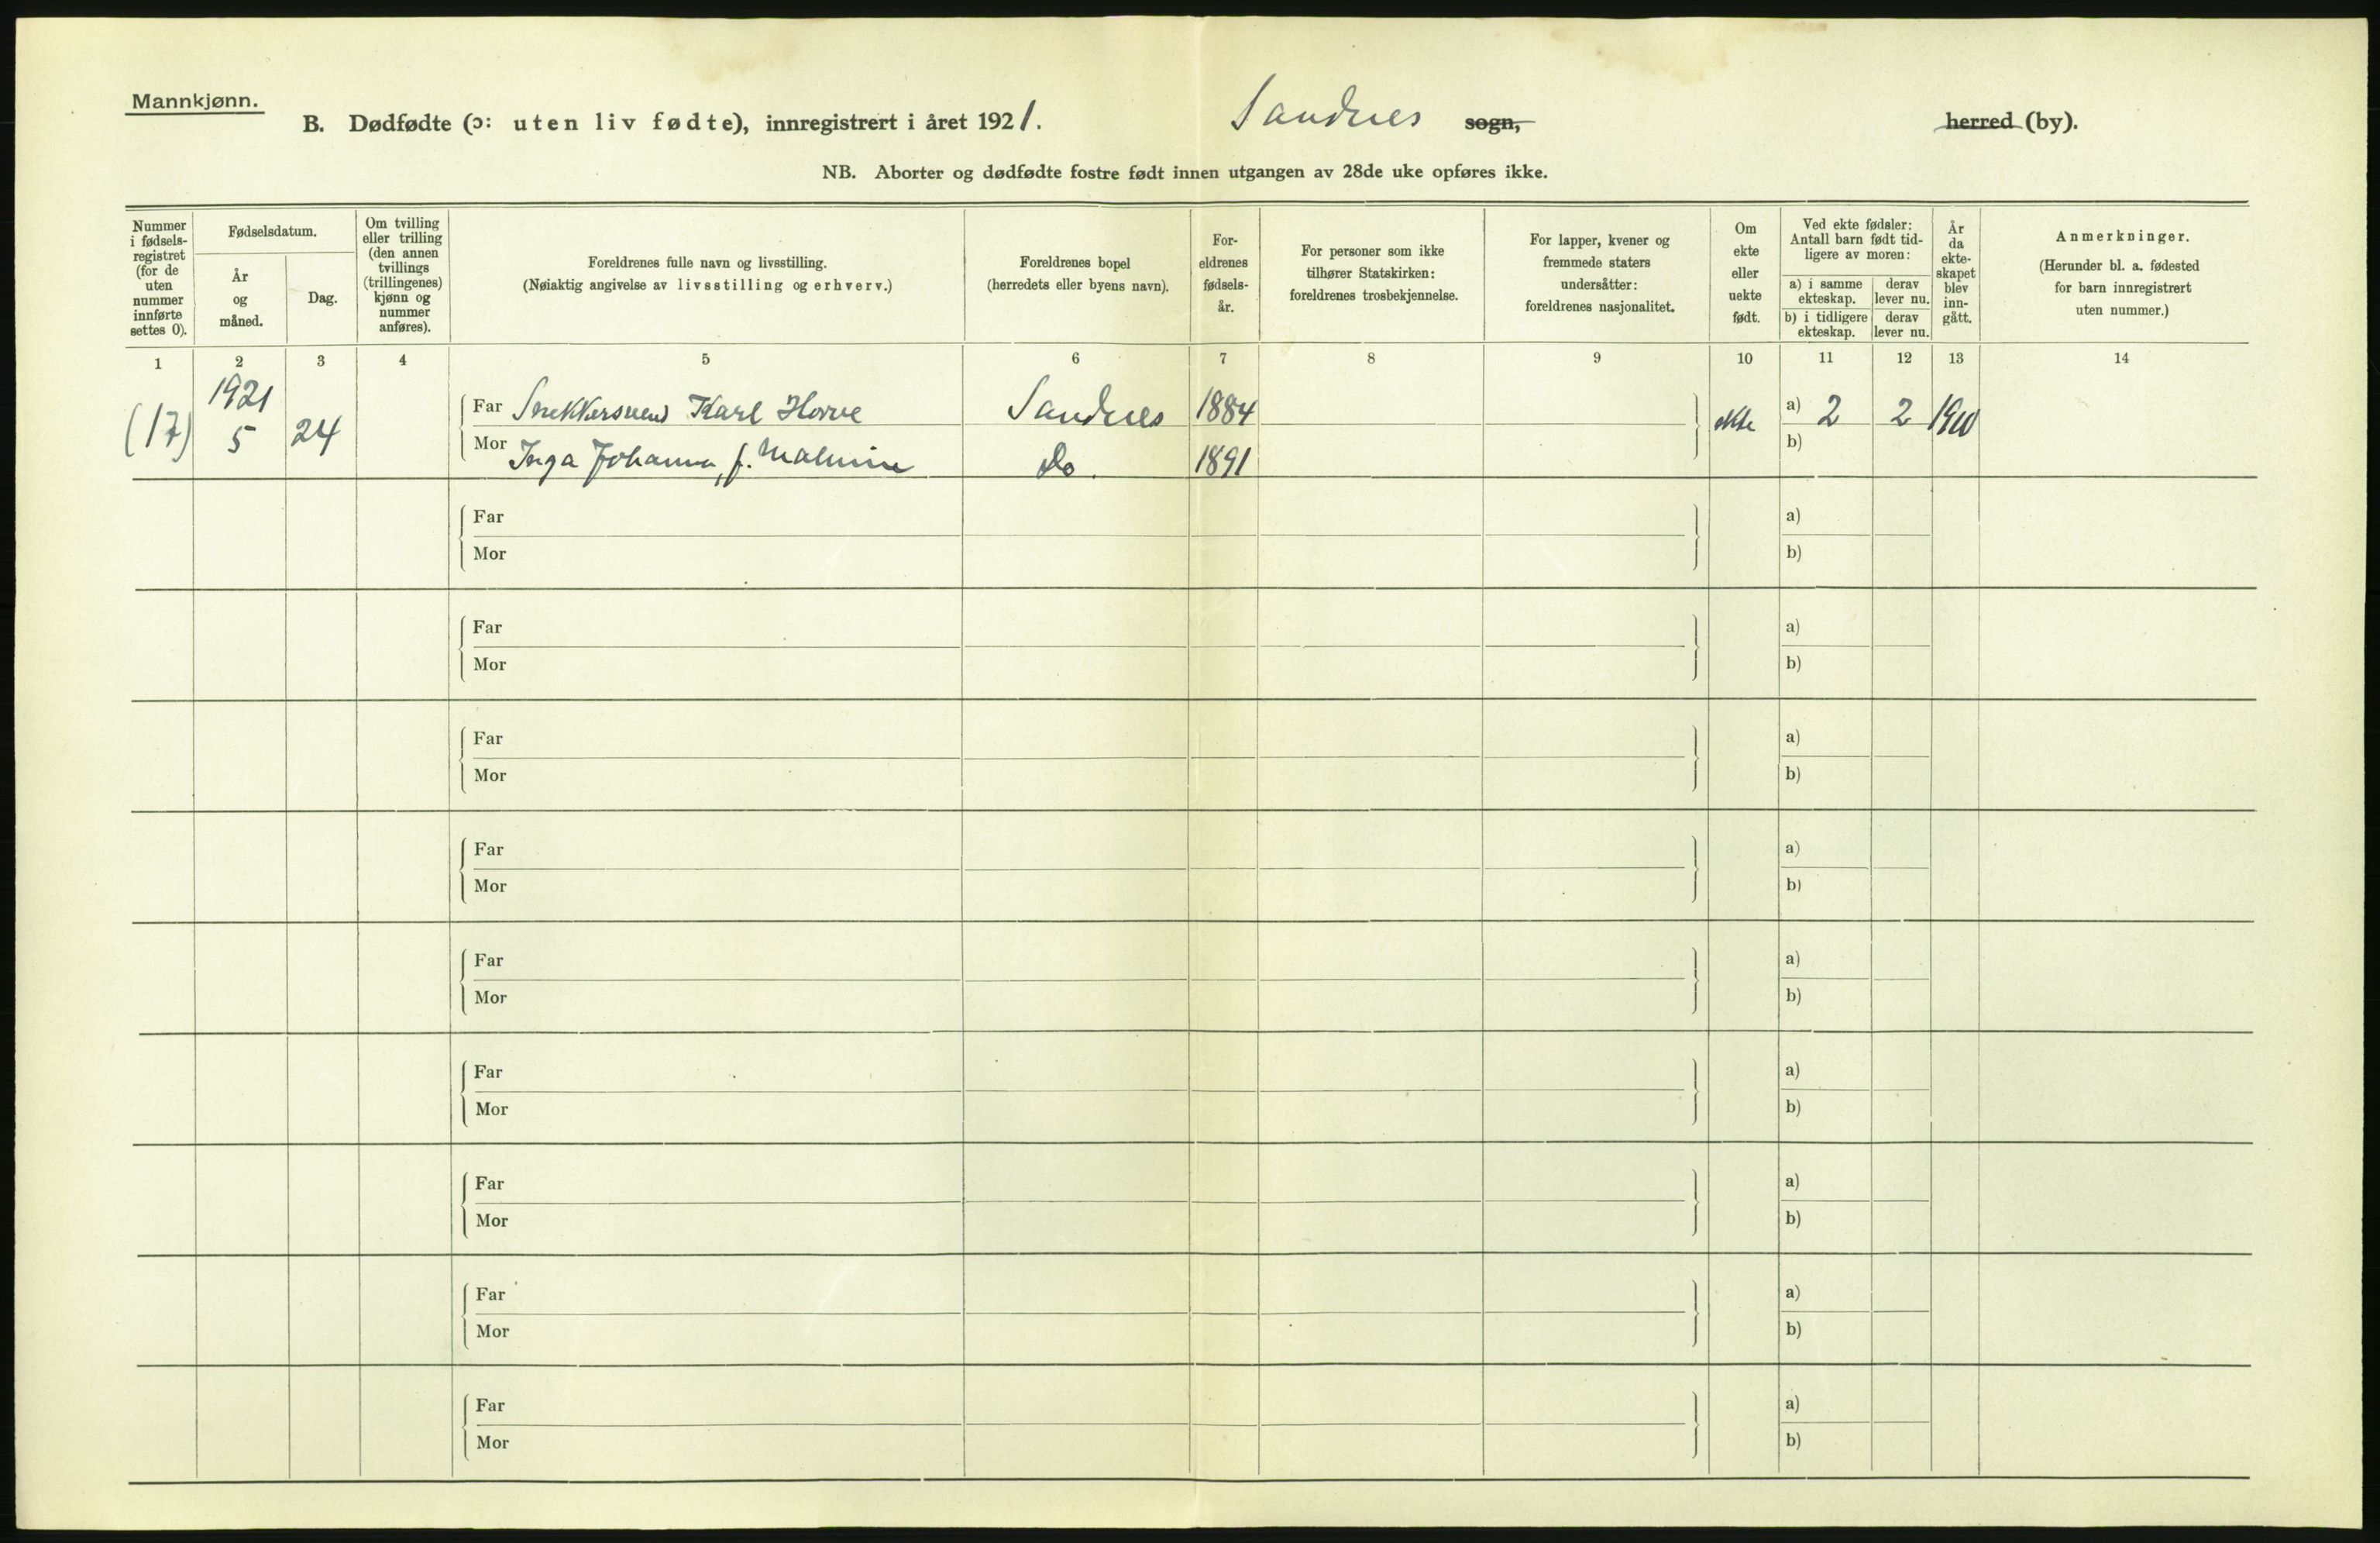 Mannkjønn.
B. Dødfødte (ɔ: uten liv fødte), innregistrert i året 1921. Sandnes sogn, herred (by).
NB. Aborter og dødfødte fostre født innen utgangen av 28de uke opføres ikke.
Nummer
i fødsels-
registret
(for de
uten
nummer
innførte
settes 0).
Fødselsdatum.
År
og
måned.
Dag.
Om tvilling
eller trilling
(den annen
tvillings
(trillingenes)
kjønn og
nummer
anføres).
Foreldrenes fulle navn og livsstilling.
(Nøiaktig angivelse av livsstilling og erhverv.)
Foreldrenes bopel
(herredets eller byens navn).
For-
eldrenes
fødsels-
år.
For personer som ikke
tilhører Statskirken:
foreldrenes trosbekjennelse.
For lapper, kvener og
fremmede staters
undersåtter:
foreldrenes nasjonalitet.
Om
ekte
eller
uekte
født.
Ved ekte fødsler:
Antall barn født tid-
ligere av moren:
a) i samme
ekteskap.
derav
lever nu.
b) i tidligere
ekteskap.
derav
lever nu.
År
da
ekte-
skapet
blev
inn-
gått.
Anmerkninger.
(Herunder bl. a. fødested
for barn innregistrert
uten nummer.)
1 2 3 4 5 6 7 8 9 10 11 12 13 14
1921
(17) 5 24
Far Snekkersvend Karl Hovve Sandnes 1884 ekte a) 2 2 1910
Mor Inga Johanna, f. Malmin Do. 1891 b)
Far a)
Mor b)
Far a)
Mor b)
Far a)
Mor b)
Far a)
Mor b)
Far a)
Mor b)
Far a)
Mor b)
Far a)
Mor b)
Far a)
Mor b)
Far a)
Mor b)